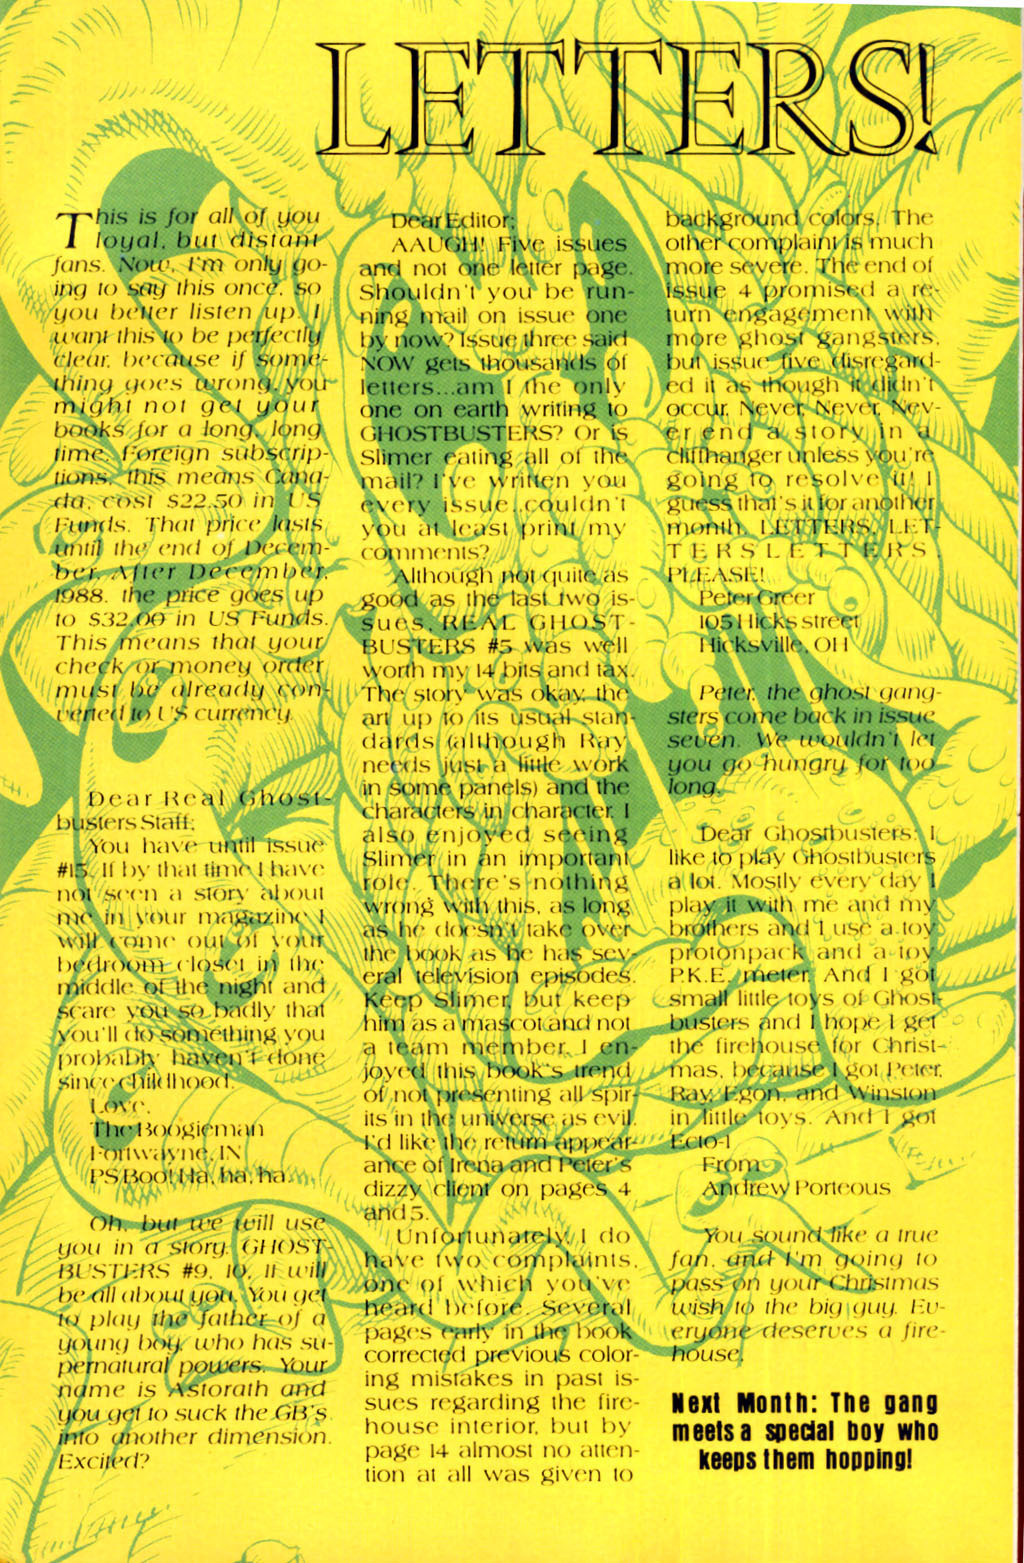 LETTERS!
This is for all of you
loyal, but distant
fans. Now, I'm only go-
ing to say this once, so
you better listen up. I
want this to be perfectly
clear, because if some-
thing goes wrong, you
might not get your
books for a long, long
time. Foreign subscrip-
tions, this means Cana-
da, cost $22.50 in US
Funds. That price lasts
until the end of Decem-
ber. After December,
1988, the price goes up
to $32.00 in US Funds.
This means that your
check or money order
must be already con-
verted to US currency.
Dear Real Ghost-
busters Staff;
You have until issue
#15. If by that time I have
not seen a story about
me in your magazine I
will come out of your
bedroom closet in the
middle of the night and
scare you so badly that
you'll do something you
probably haven't done
since childhood.
Love,
The Boogieman
Fortwayne, IN
PS Boo! Ha, ha, ha.
Oh, but we will use
you in a story. GHOST-
BUSTERS #9, 10. It will
be all about you. You get
to play the father of a
young boy, who has su-
pernatural powers. Your
name is Astorath and
you get to suck the GB's
into another dimension.
Excited?
Dear Editor;
AAUGH! Five issues
and not one letter page.
Shouldn't you be run-
ning mail on issue one
by now? Issue three said
NOW gets thousands of
letters...am I the only
one on earth writing to
GHOSTBUSTERS? Or is
Slimer eating all of the
mail? I've written you
every issue..couldn't
you at least print my
comments?
Although not quite as
good as the last two is-
sues, REAL GHOST-
BUSTERS #5 was well
worth my 14 bits and tax.
The story was okay, the
art up to its usual stan-
dards (although Ray
needs just a little work
in some panels) and the
characters in character. I
also enjoyed seeing
Slimer in an important
role. There's nothing
wrong with this, as long
as he doesn't take over
the book as he has sev-
eral television episodes.
Keep Slimer, but keep
him as a mascot and not
a team member. I en-
joyed this book's trend
of not presenting all spir-
its in the universe as evil.
I'd like the return appear-
ance of Irena and Peter's
dizzy client on pages 4
and 5.
Unfortunately, I do
have two complaints,
one of which you've
heard before. Several
pages early in the book
corrected previous color-
ing mistakes in past is-
sues regarding the fire-
house interior, but by
page 14 almost no atten-
tion at all was given to
background colors. The
other complaint is much
more severe. The end of
issue 4 promised a re-
turn engagement with
more ghost gangsters,
but issue five disregard-
ed it as though it didn't
occur. Never, Never, Nev-
er end a story in a
cliffhanger unless you're
going to resolve it! I
guess that's it for another
month. LETTERS, LET-
TERS LETTERS,
PLEASE!
Peter Greer
105 Hicks street
Hicksville, OH
Peter, the ghost gang-
sters come back in issue
seven. We wouldn't let
you go hungry for too
long.
Dear Ghostbusters: I
like to play Ghostbusters
a lot. Mostly every day I
play it with me and my
brothers and I use a toy
protonpack and a toy
P.K.E. meter. And I got
small little toys of Ghost-
busters and I hope I get
the firehouse for Christ-
mas, because I got Peter,
Ray, Egon, and Winston
in little toys. And I got
Ecto-1
From
Andrew Porteous
You sound like a true
fan, and I'm going to
pass on your Christmas
wish to the big guy. Ev-
eryone deserves a fire-
house.
Next Month: The gang
meets a special boy who
keeps them hopping!